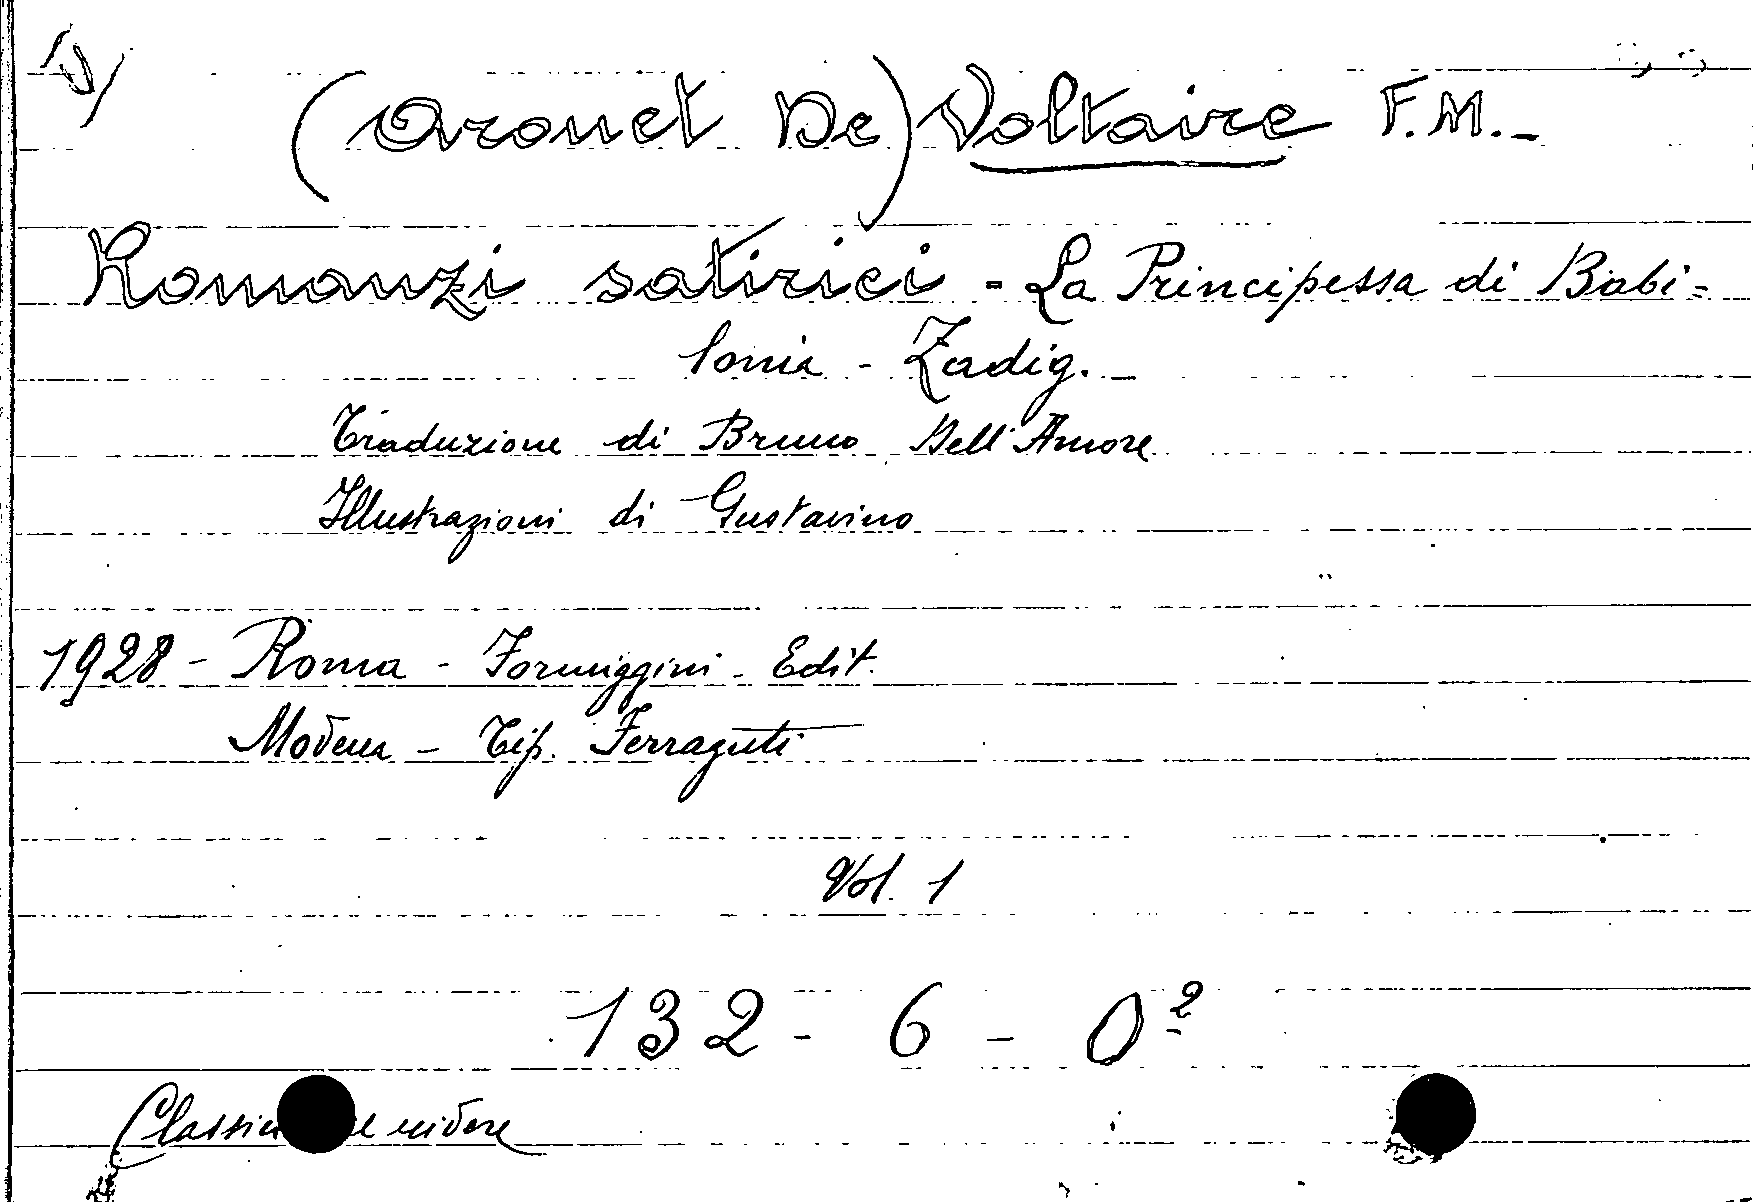 (Arouet De) Voltaire F.M.-
Romanzi satirici - La Principessa di Babi=
lonia - Zadig.-
Traduzione di Bruno Dell'Amore
Illustrazioni di Gustavino
1928 - Roma - Formiggini - Edit.
Modena - Tip. Ferraguti
Vol. 1
132 - 6 - O²
Classici del ridere